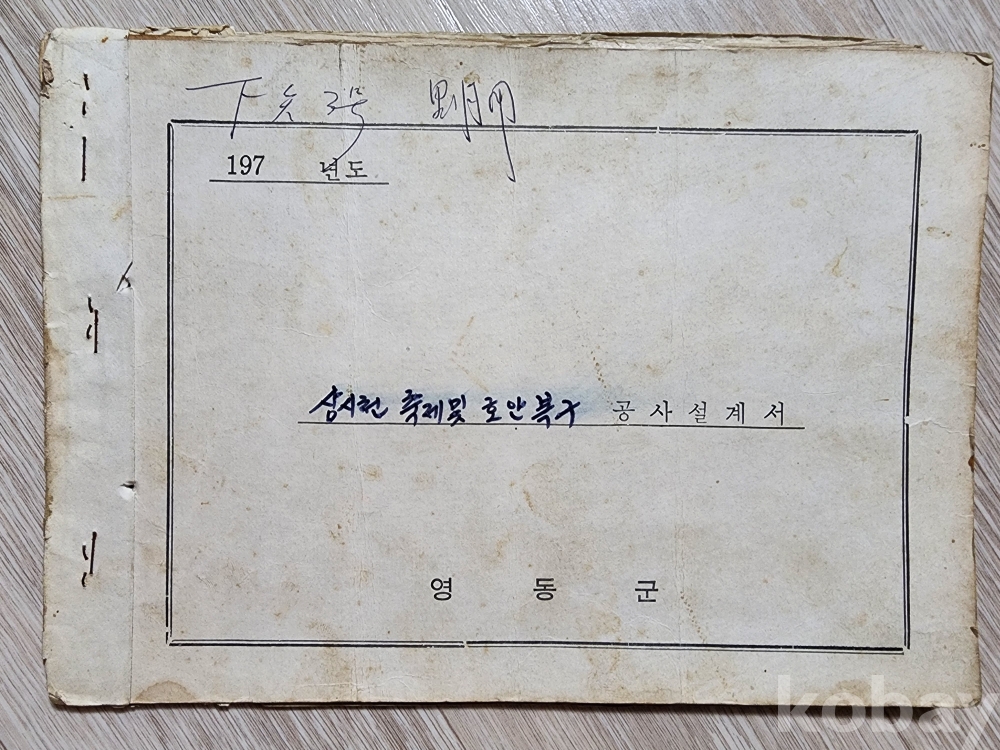 197 년도
삼시천 축제및 호안복구 공사설계서
영동군
kobay